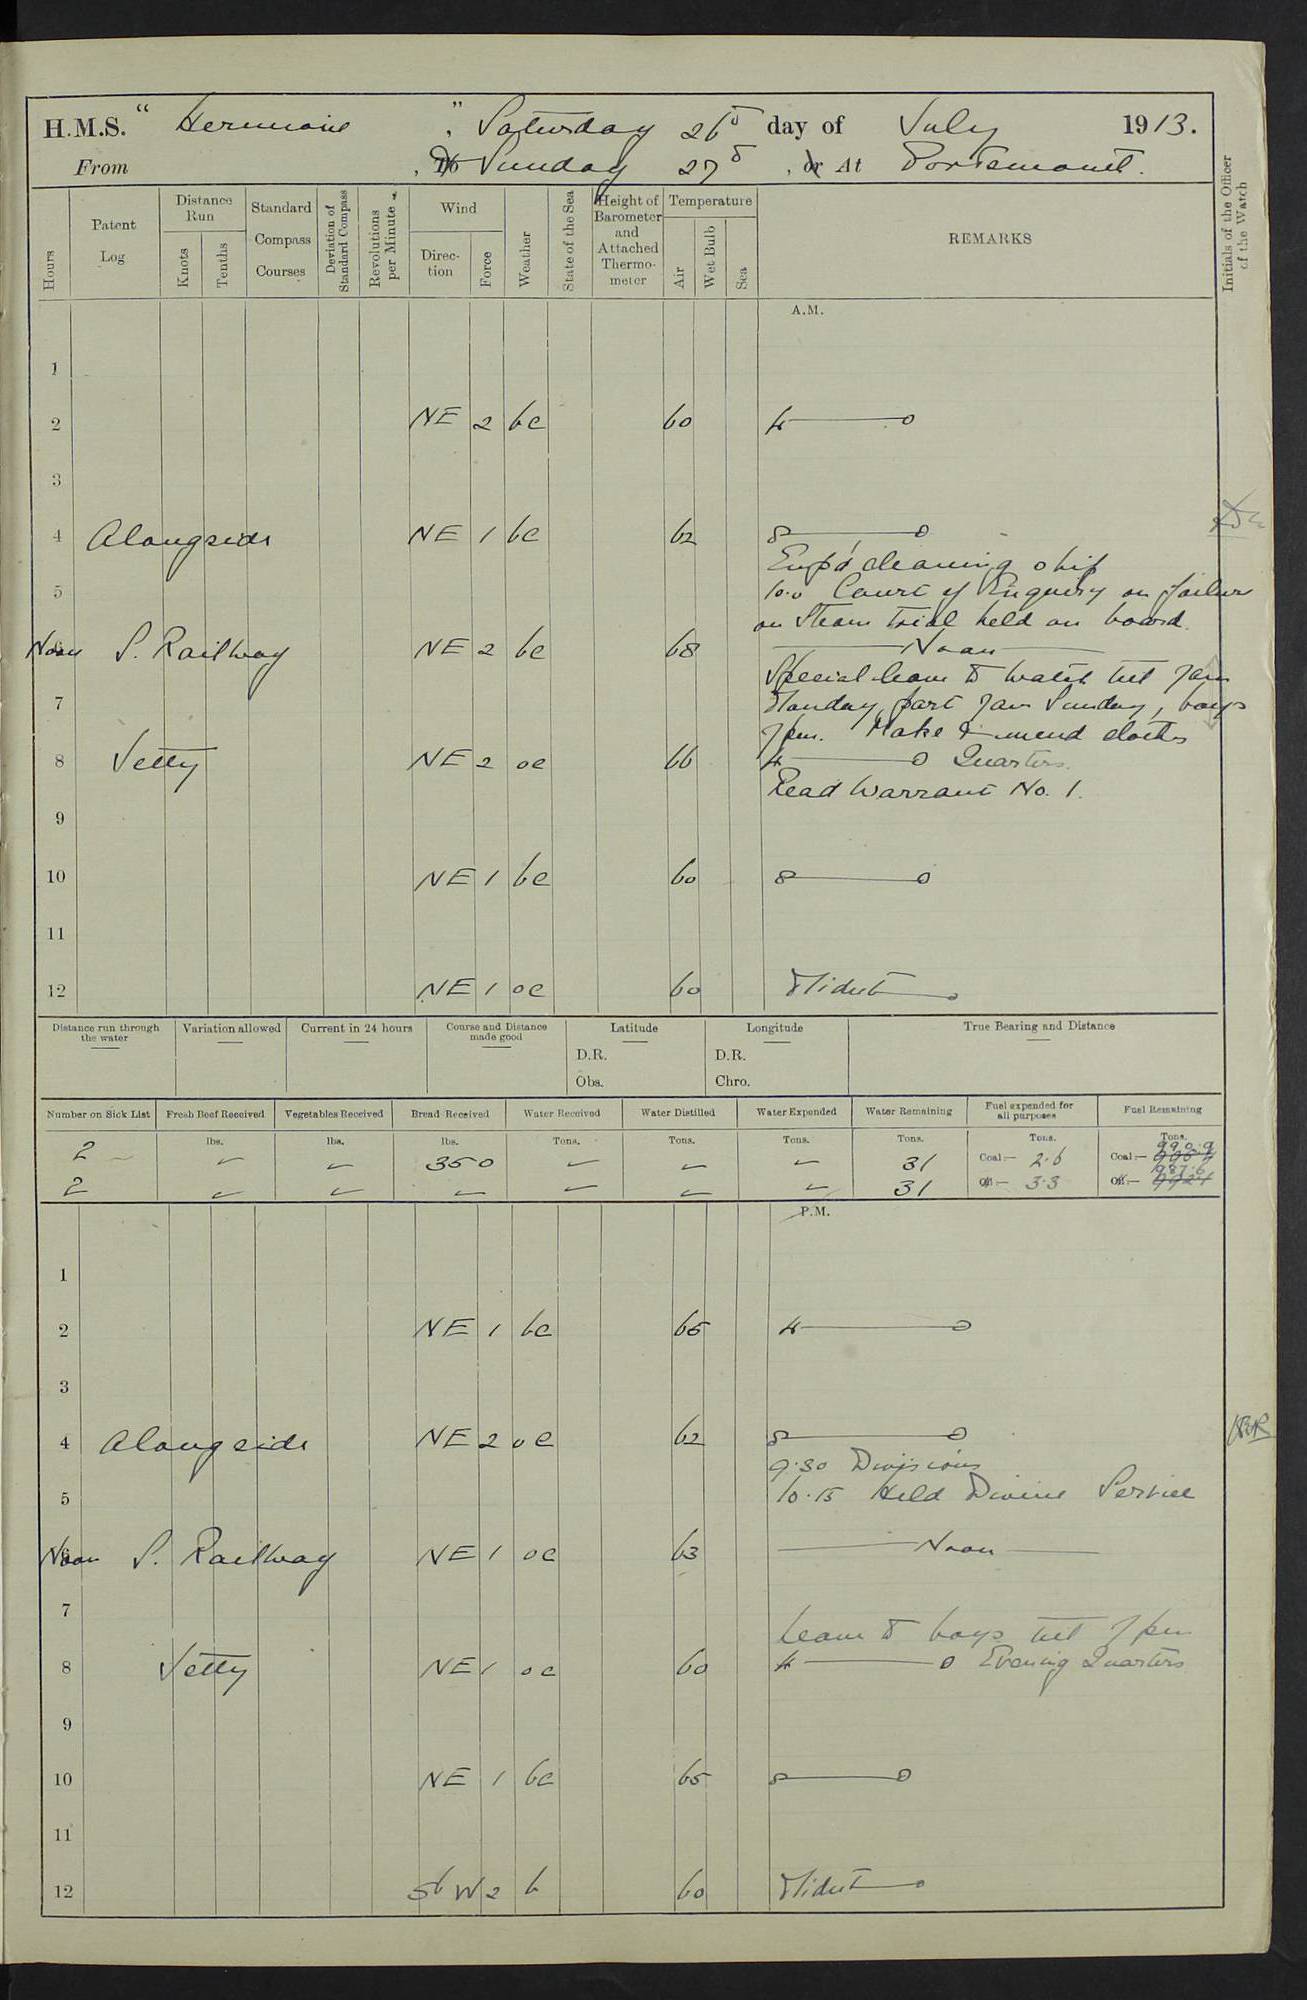 H.M.S. "Hermione", Saturday 26th day of July 1913.
From , To Sunday 27th , or At Portsmouth.
Hours
Patent Log
Distance Run
Knots
Tenths
Standard Compass Courses
Deviation of Standard Compass
Revolutions per Minute
Wind
Direction
Force
Weather
State of the Sea
Height of Barometer and Attached Thermometer
Temperature
Air
Wet Bulb
Sea
REMARKS
Initials of the Officer of the Watch
A.M.
1
2 NE 2 bc 60 4
3
4 Alongside NE 1 bc 62 8
Emp'd cleaning ship
5 10.0 Court of Enquiry on failure
on Steam trial held on board.
Noon S. Railway NE 2 bc 68 Noon
Special leave to watch till 7am
7 Monday, part 7am Sunday, boys
7pm. Make & mend clothes
8 Jetty NE 2 oc 66 4 Quarters.
Read Warrant No. 1.
9
10 NE 1 bc 60 8
11
12 NE 1 oc 60 Midnt
Distance run through the water
Variation allowed
Current in 24 hours
Course and Distance made good
Latitude
D.R.
Obs.
Longitude
D.R.
Chro.
True Bearing and Distance
Number on Sick List
Fresh Beef Received
Vegetables Received
Bread Received
Water Received
Water Distilled
Water Expended
Water Remaining
Fuel expended for all purposes
Fuel Remaining
lbs. lbs. lbs. Tons. Tons. Tons. Tons. Tons. Tons.
2 350 31 Coal:— 2.6 Coal:— 990.9
2 31 Oil:— 3.3 Oil:— 987.6
P.M.
1
2 NE 1 bc 65 4
3
4 Alongside NE 2 oc 62 8
9.30 Divisions
5 10.15 Held Divine Service
Noon S. Railway NE 1 oc 63 Noon
7
Leave to boys till 7pm
8 Jetty NE 1 oc 60 4 Evening Quarters
9
10 NE 1 bc 65 8
11
12 SbW 2 b 60 Midnt